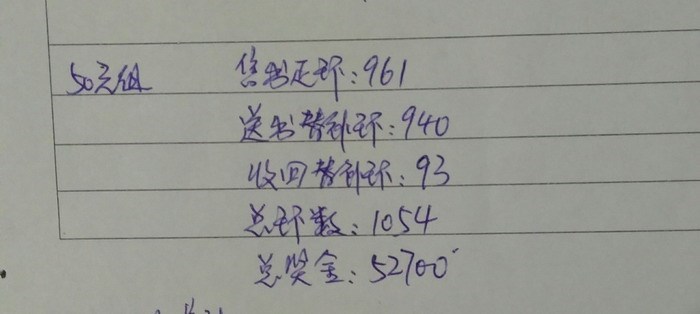 50元组 售出正环:961
送出替补环:940
收回替补环:93
总环数:1054
总奖金:52700